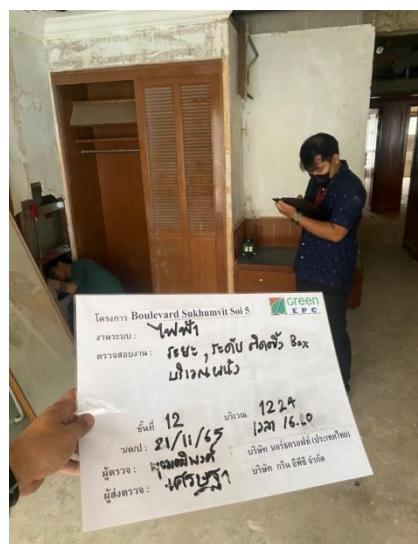 โครงการ Boulevard Sukhumvit Soi 5
Green
EPC
งานระบบ : ไฟฟ้า
ตรวจสอบงาน : ระยะ, ระดับ ติดตั้ง Box
บริเวณผนัง
ชั้นที่ 12 บริเวณ 1224
ว/ด/ป : 21/11/65 เวลา 16.20
ผู้ตรวจ : บริษัท นอร์ธครอฟท์ (ประเทศไทย)
ผู้ส่งตรวจ : เศรษฐา บริษัท กรีน อีพีซี จำกัด